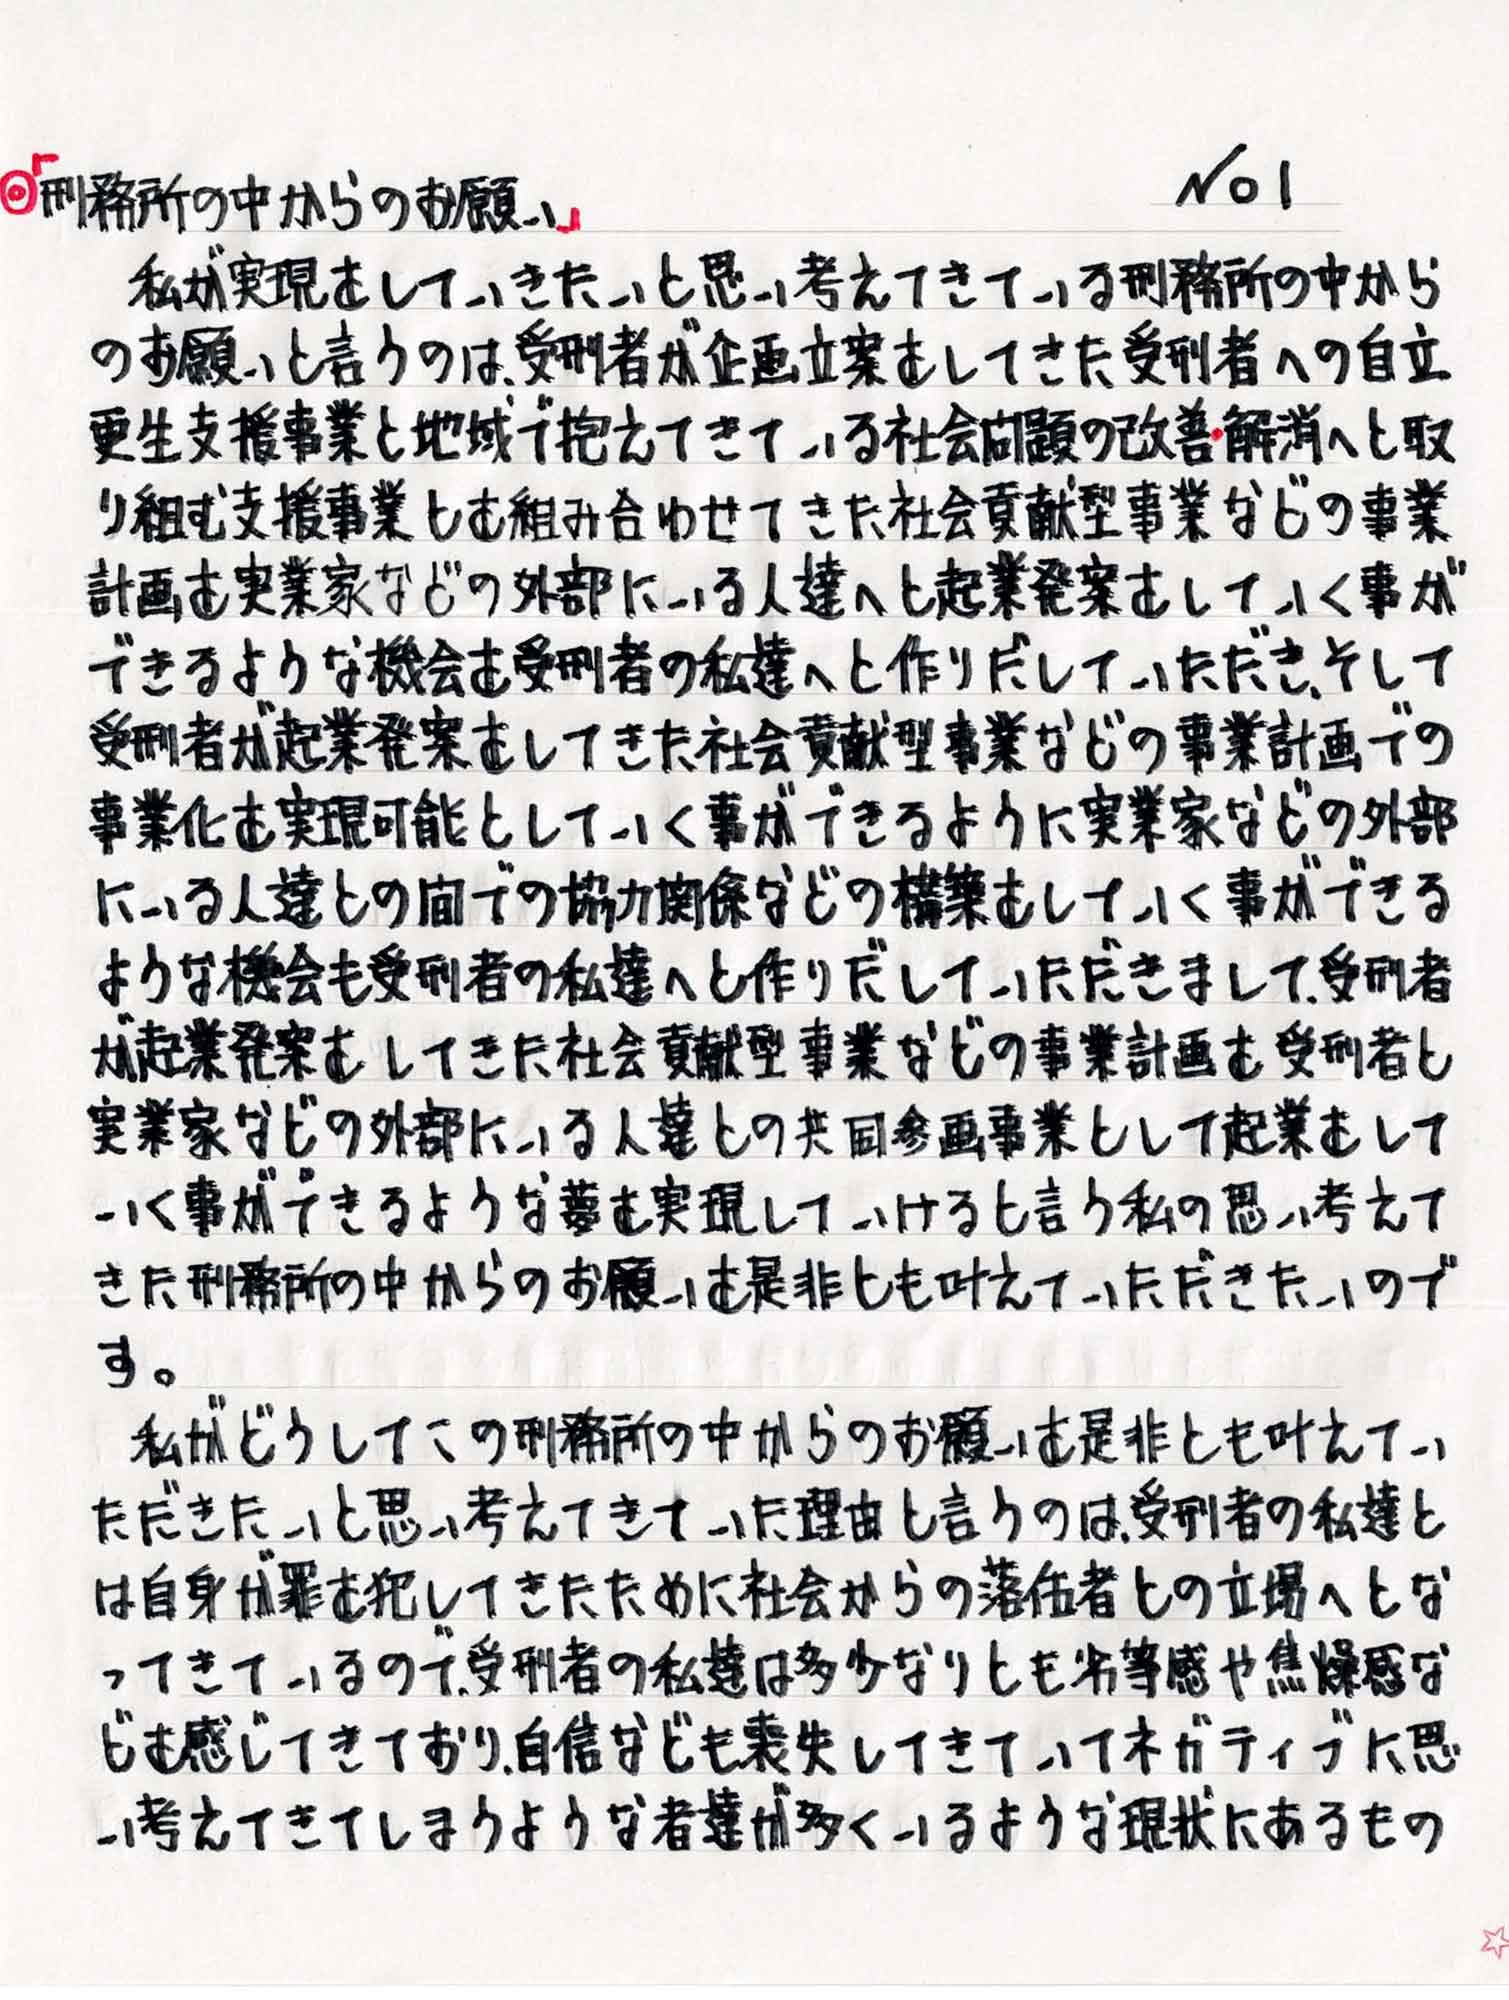 No1
◎「刑務所の中からのお願い」
私が実現をしていきたいと思い考えてきている刑務所の中から
のお願いと言うのは、受刑者が企画立案をしてきた受刑者への自立
更生支援事業と地域で抱えてきている社会問題の改善・解消へと取
り組む支援事業とを組み合わせてきた社会貢献型事業などの事業
計画を実業家などの外部にいる人達へと起業発案をしていく事が
できるような機会を受刑者の私達へと作りだしていただき、そして
受刑者が起業発案をしてきた社会貢献型事業などの事業計画での
事業化を実現可能としていく事ができるように実業家などの外部
にいる人達との間での協力関係などの構築をしていく事ができる
ような機会も受刑者の私達へと作りだしていただきまして、受刑者
が起業発案をしてきた社会貢献型事業などの事業計画を受刑者と
実業家などの外部にいる人達との共同参画事業として起業をして
いく事ができるような夢を実現していけると言う私の思い考えて
きた刑務所の中からのお願いを是非とも叶えていただきたいので
す。
私がどうしてこの刑務所の中からのお願いを是非とも叶えてい
ただきたいと思い考えてきていた理由と言うのは、受刑者の私達と
は自身が罪を犯してきたために社会からの落伍者との立場へとな
ってきているので、受刑者の私達は多少なりとも劣等感や焦燥感な
どを感じてきており、自信なども喪失してきていてネガティブに思
い考えてきてしまうような者達が多くいるような現状にあるもの